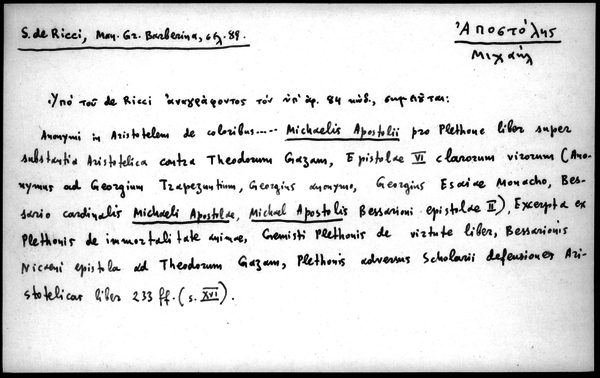 S. de Ricci, Man. Gr. Barberina, σελ. 89.
Ἀποστόλης
Μιχαήλ
Ὑπό τοῦ de Ricci ἀναγράφοντος τόν ὑπ' ἀρ. 84 κώδ., σημειοῦται:
Anonymi in Aristotelem de coloribus..... Michaelis Apostolii pro Plethone liber super
substantia Aristotelica contra Theodorum Gazam, Epistolae VI clarorum virorum (Ano-
nymus ad Georgium Trapezuntium, Georgius anonymo, Georgius Esaiae Monacho, Bes-
sario cardinalis Michaeli Apostolae, Michael Apostolis Bessarioni epistolae II), Excerpta ex
Plethonis de immortalitate animae, Gemisti Plethonis de virtute liber, Bessarionis
Nicaeni epistola ad Theodorum Gazam, Plethonis adversus Scholarii defensiones Ari-
stotelicas liber 233 ff. (s. XVI).